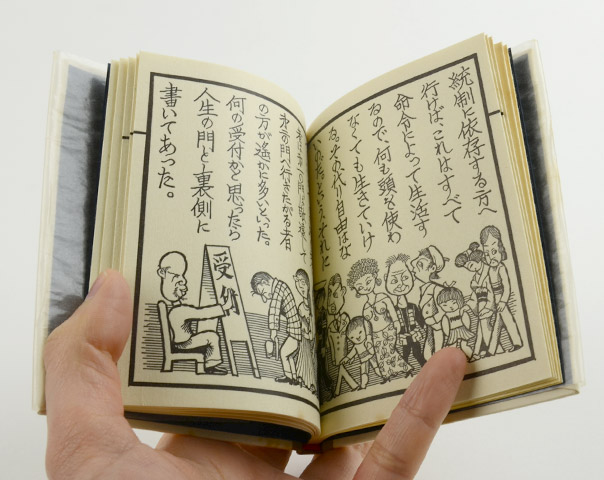 統制に依存する方へ
行けば、これはすべて
命令によって生活す
るので、何も頭を使わ
なくても生きていけ
る。そのかわり自由はな
いのだ。という。それと
の門へ行きたがる者
の方が遙かに多いといった。
何の受付かと思ったら
人生の門と裏側に
書いてあった。
受付